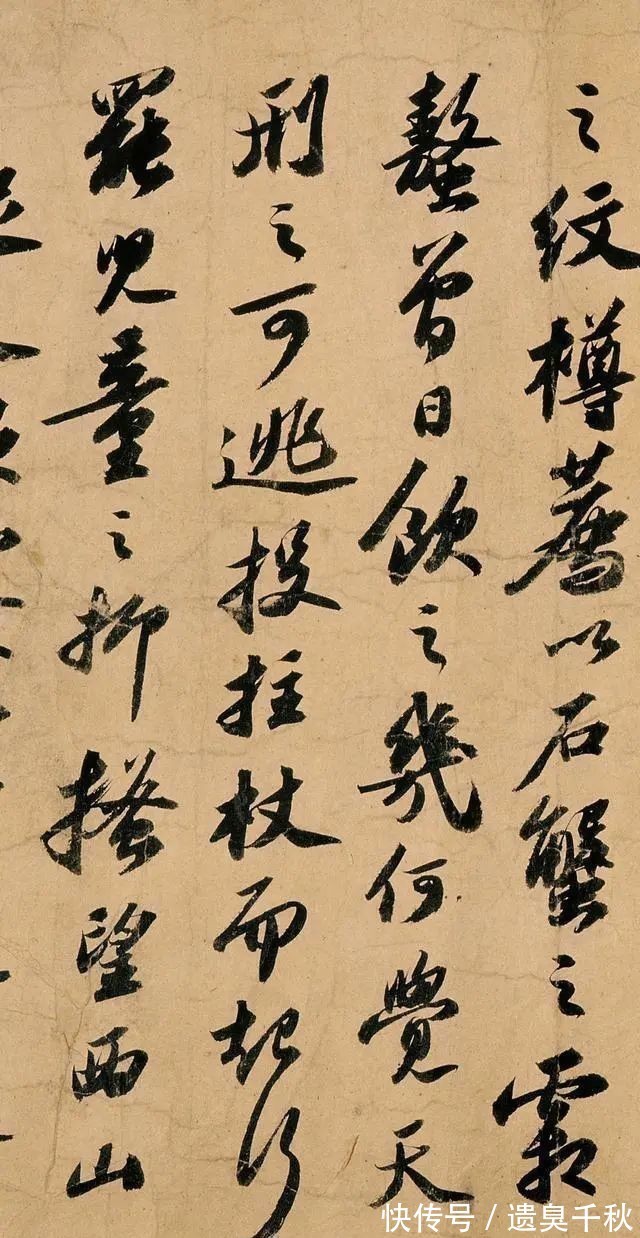 之纹樽薦以石蟹之霜
螯曾日飲之幾何覺天
刑之可逃投拄杖而起行
罷兒童之抑搔望西山
快传号／遗臭千秋